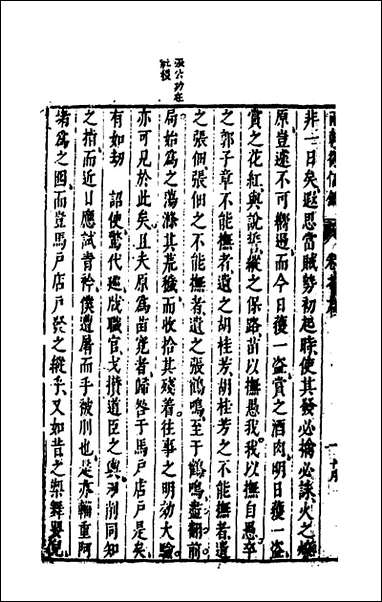 張公功在
社稷
非一日矣遐思當賊勢初起時使其發必擒必誅火之燎
原豈遂不可禦遏而今日獲一盗賞之酒肉明日獲一盗
賞之花紅與説誓縱之保路苗以撫愚我我以撫自愚卒
之郭子章不能撫者遺之胡桂芳胡桂芳之不能撫者遺
之張佃張佃之不能撫者遺之張鶴鳴至于鶴鳴盡翻前
局始爲之蕩滌其荒穢而收拾其殘着往事之明効大驗
亦可見於此矣且夫原爲苗寃者歸咎于馬戸店戸是矣
有如刼 詔使驚代巡戕職官戈擠道臣之輿刑削同知
之指而近日應試青衿僕遭屠而手被刖也是亦輛重阿
堵爲之囮而豈馬戸店戸發之縱乎又如昔之